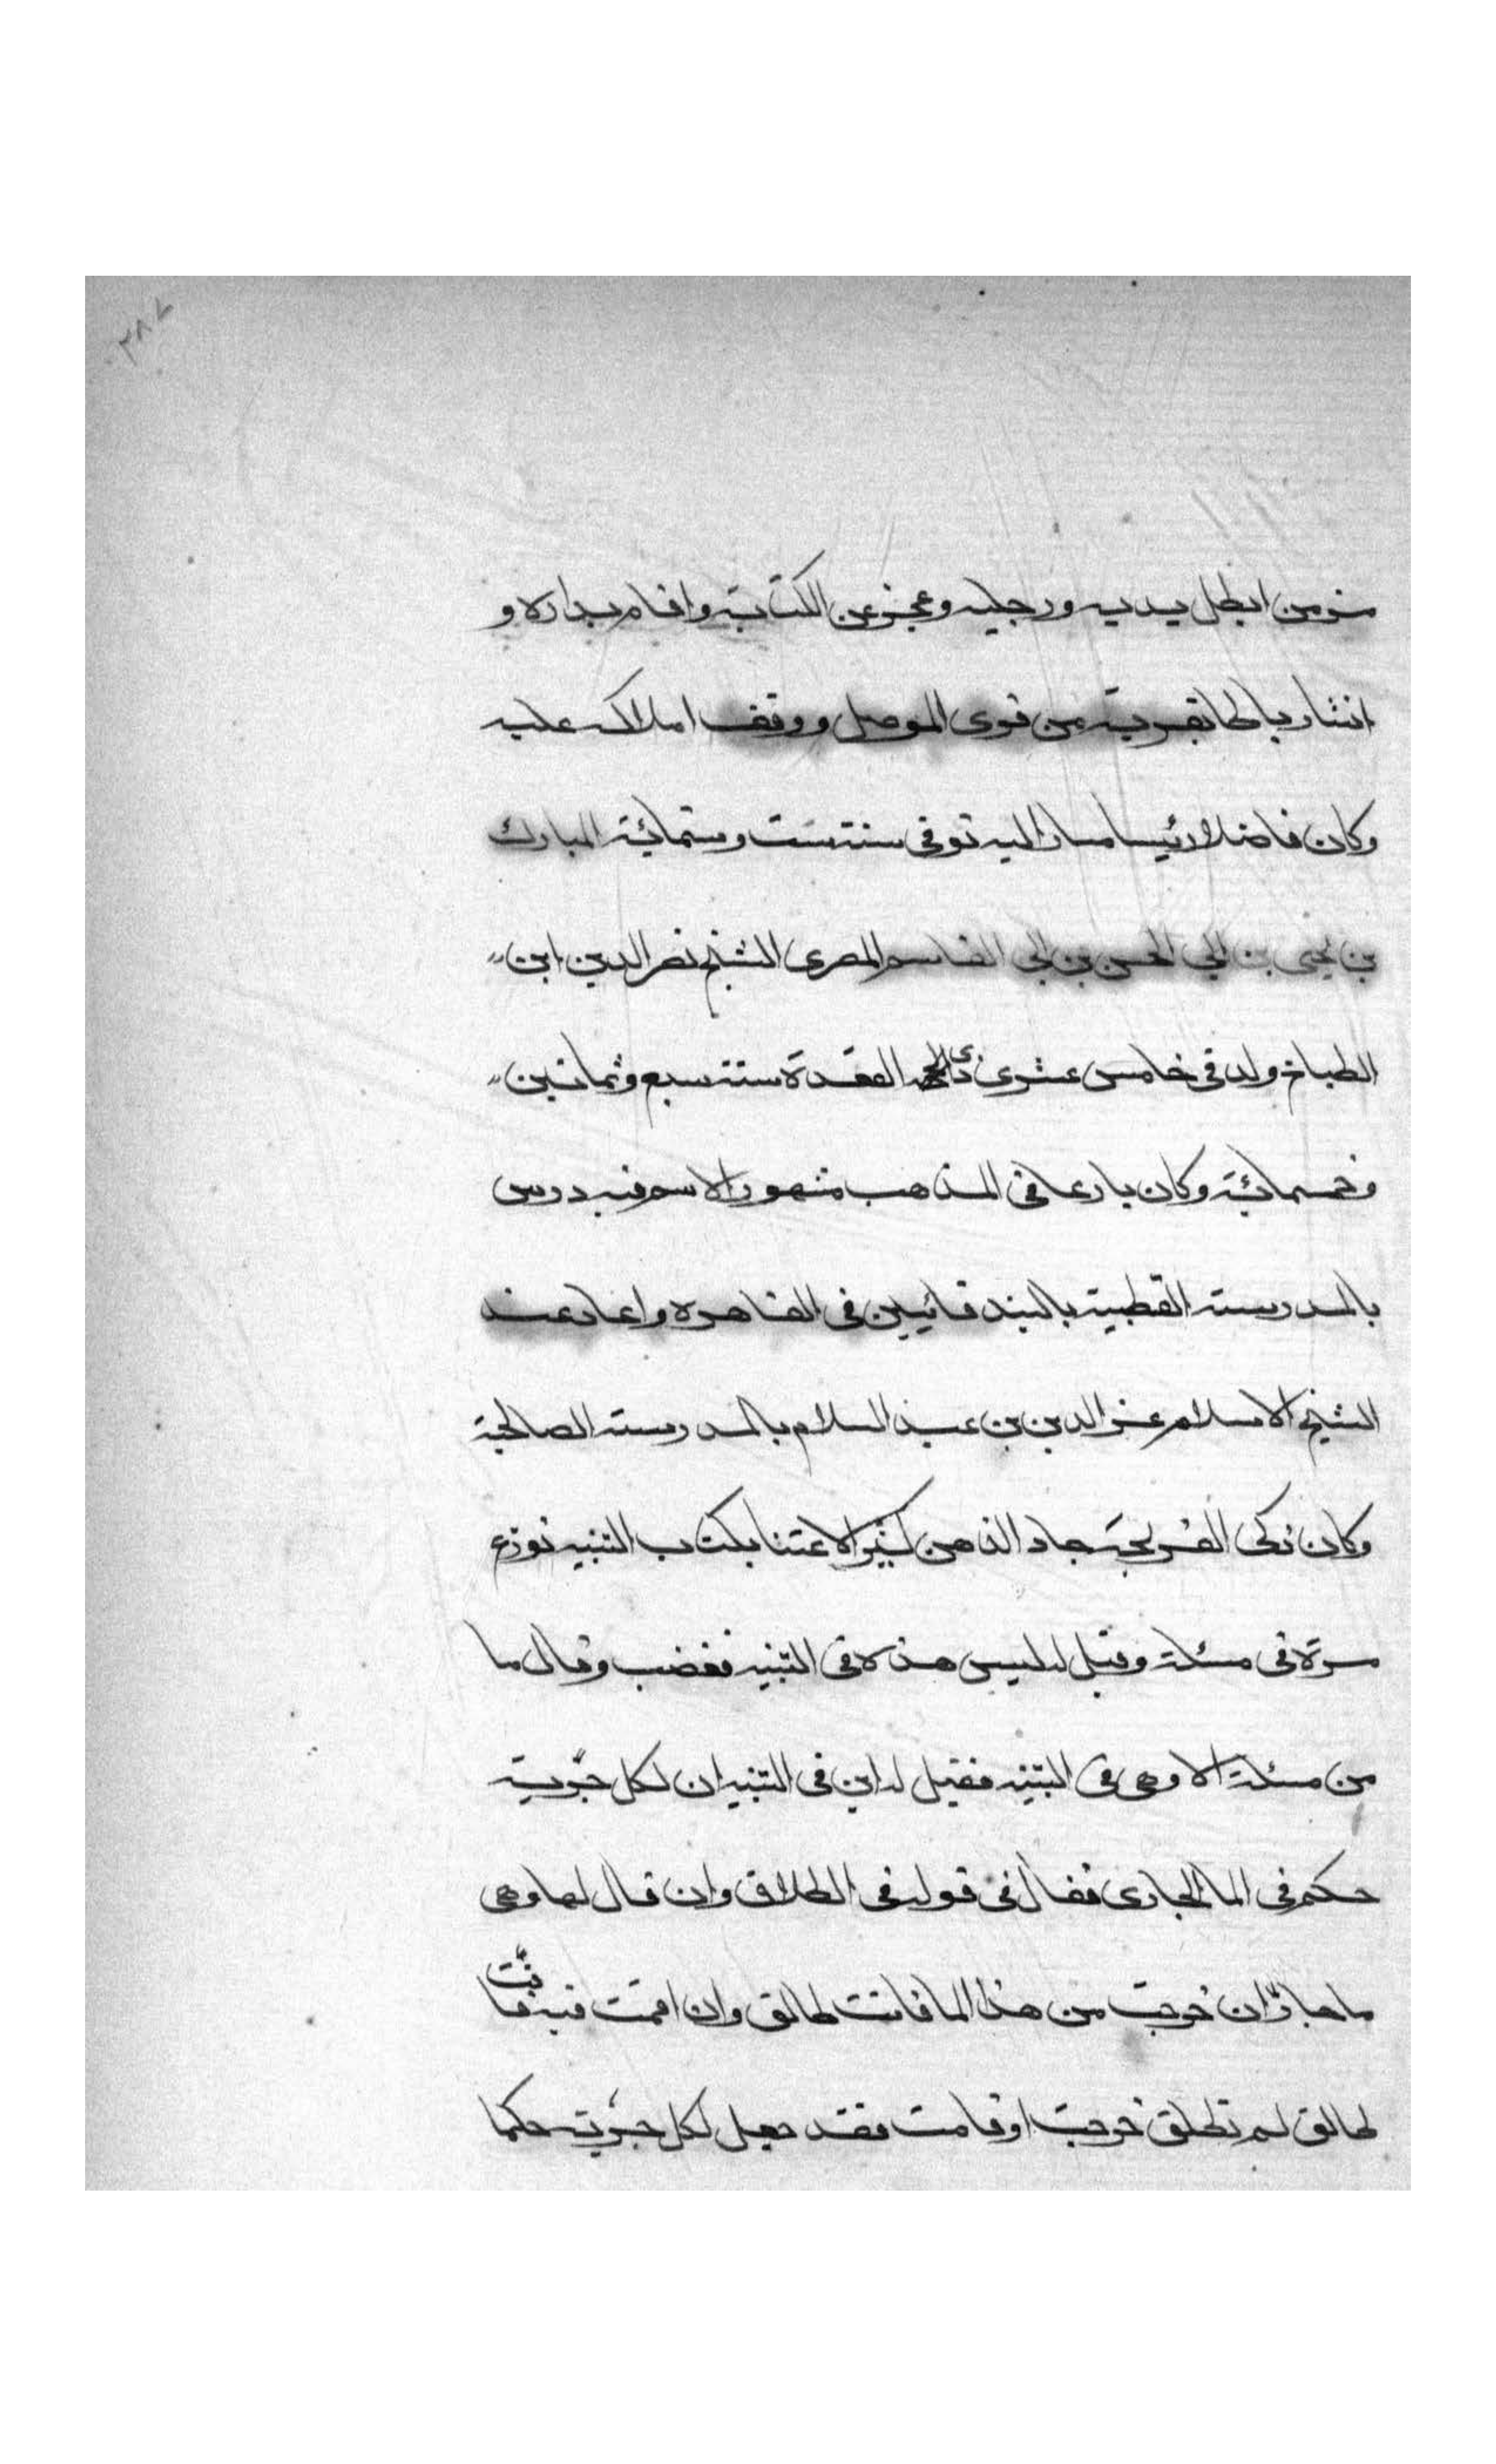 ٣٨٧
مزمن ابطل يديه ورجليه وعجز عن الكتابة واقام بداره و
انشا رباطا بقرية من قرى الموصل ووقف املاكه عليه
وكان فاضلا رئيسا مشارا اليه توفى سنة ست وستمائة المبارك
بن يحيى بن ابي الحسن بن ابي القاسم المصرى الشيخ نصر الدين ابن
الطباخ ولد فى خامس عشرى ذى القعدة سنة سبع وثمانين
وخمسمائة وكان بارعا فى المذهب مشهور الاسم فيه درس
بالمدرسة القطبية بالبندقانيين فى القاهرة واعاد عند
الشيخ الاسلام عز الدين بن عبد السلام بالمدرسة الصالحية
وكان ذكى القريحة حاد الذهن كثير الاعتنا بكتاب التنبيه نوزع
مرة فى مسئلة وقيل له ليس هذه فى التنبيه فغضب وقال ما
من مسئلة الا وهى فى التنبيه فقيل له اين فى التنبيه ان لكل جرية
حكم فى الما الجارى فقال فى قوله فى الطلاق وان قال لها وهى
ما جار ان خرجت من هذا الما فانت طالق وان اقمت فيه فانت
طالق لم تطلق خرجت او قامت فقد جعل لكل جرية حكما